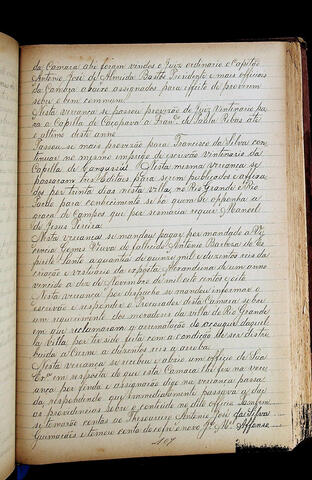 da Camara ahi foram vindos o Juiz ordinario e Capitão
Antonio José de Almeida Bastos Prezidente e mais officiaes
da Camara abaixo assignados para effeito de proverem
sobre o bem commum.
Nesta vereança se passou provizão de Juiz Vintenario pa
ra a Capilla de Caçapava a Franco de Paula Rebas até
ultimo deste anno
Passou se mais provizão para Francisco da Silva con
tinuar no mesmo emprego de escrivão vintenario da
Capilla de Cangussú Nesta mesma vereança se
passaram Editaes para serem publicados e affixa
dos por trinta dias nesta villa, no Rio Grande e Rio
Pardo para conhecimento se ha quem se opponha a
graça de Campos que por sesmaria requer Manoel
de Jesus Pereira.
Nesta vereança se mandou pagar por mandado a Vi
cencia Gomes Viuva do fallecido Antonio Barbosa de
a quantia de quinze mil e duzentos reis da
criação e vestiario da exposta Merandina de um anno
vencido a dez de Novembro de mil oito centos e oito
Nesta vereança por despacho se mandou informar o
escrivão e responder o Procurador desta Camara sobre
um requerimento dos moradores da villa do Rio Grande
em que reclamaram a arrematação do açougue daquel
la Villa por ter sido feita com a condição de ser distri
buida a Carne a duzentos reis a arroba.
Nesta vereança se recebeu e abriu um officio de Sua
Exca em resposta do que esta Camara lhe fez na verea
nça finda e assignarão digo na vereança passa
da, respondendo que immediatamente passava a dar
as providencias sobre o contendo no dito officio tambem
se tomarão contas ao Thesoureiro Antonio José da Silva
Guimarães e tomou conta do cofre o novo Je Mel Affonso
107